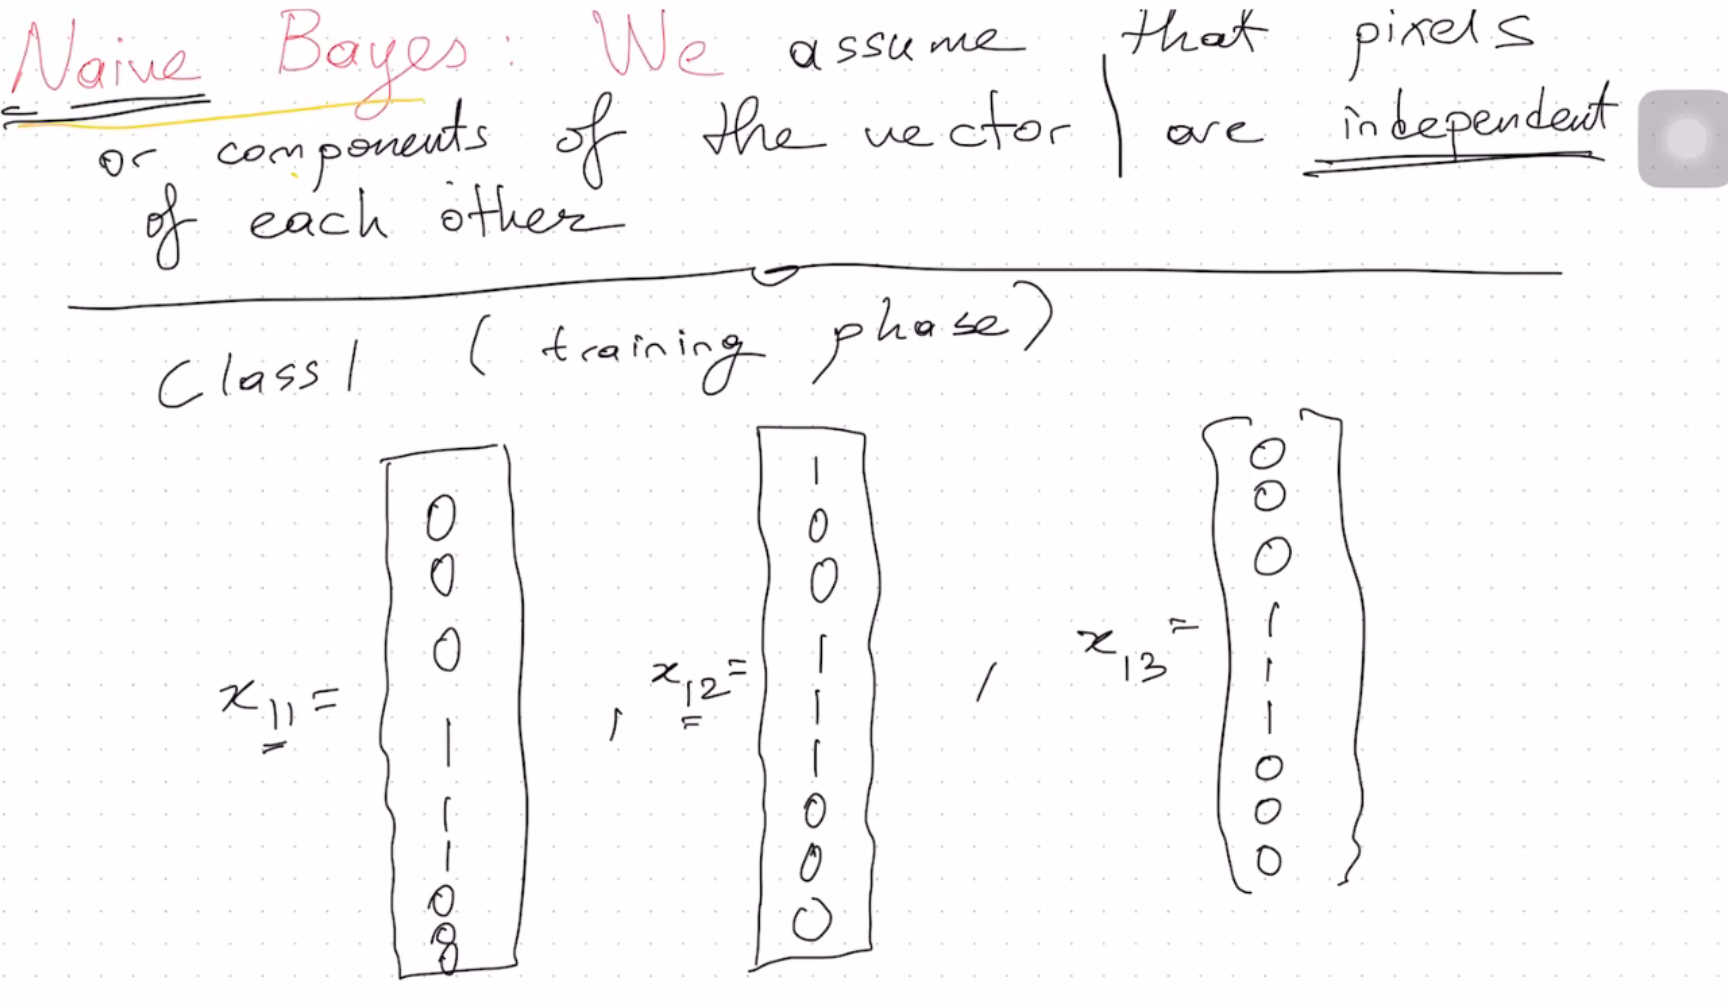 Naive Bayes: We assume that pixels
or components of the vector | are independent
of each other
Class 1 (training phase)
x₁₁ = [0 0 0 1 1 1 0 0 0], x₁₂ = [1 0 0 1 1 1 0 0 0], x₁₃ = [0 0 0 1 1 1 0 0 0]